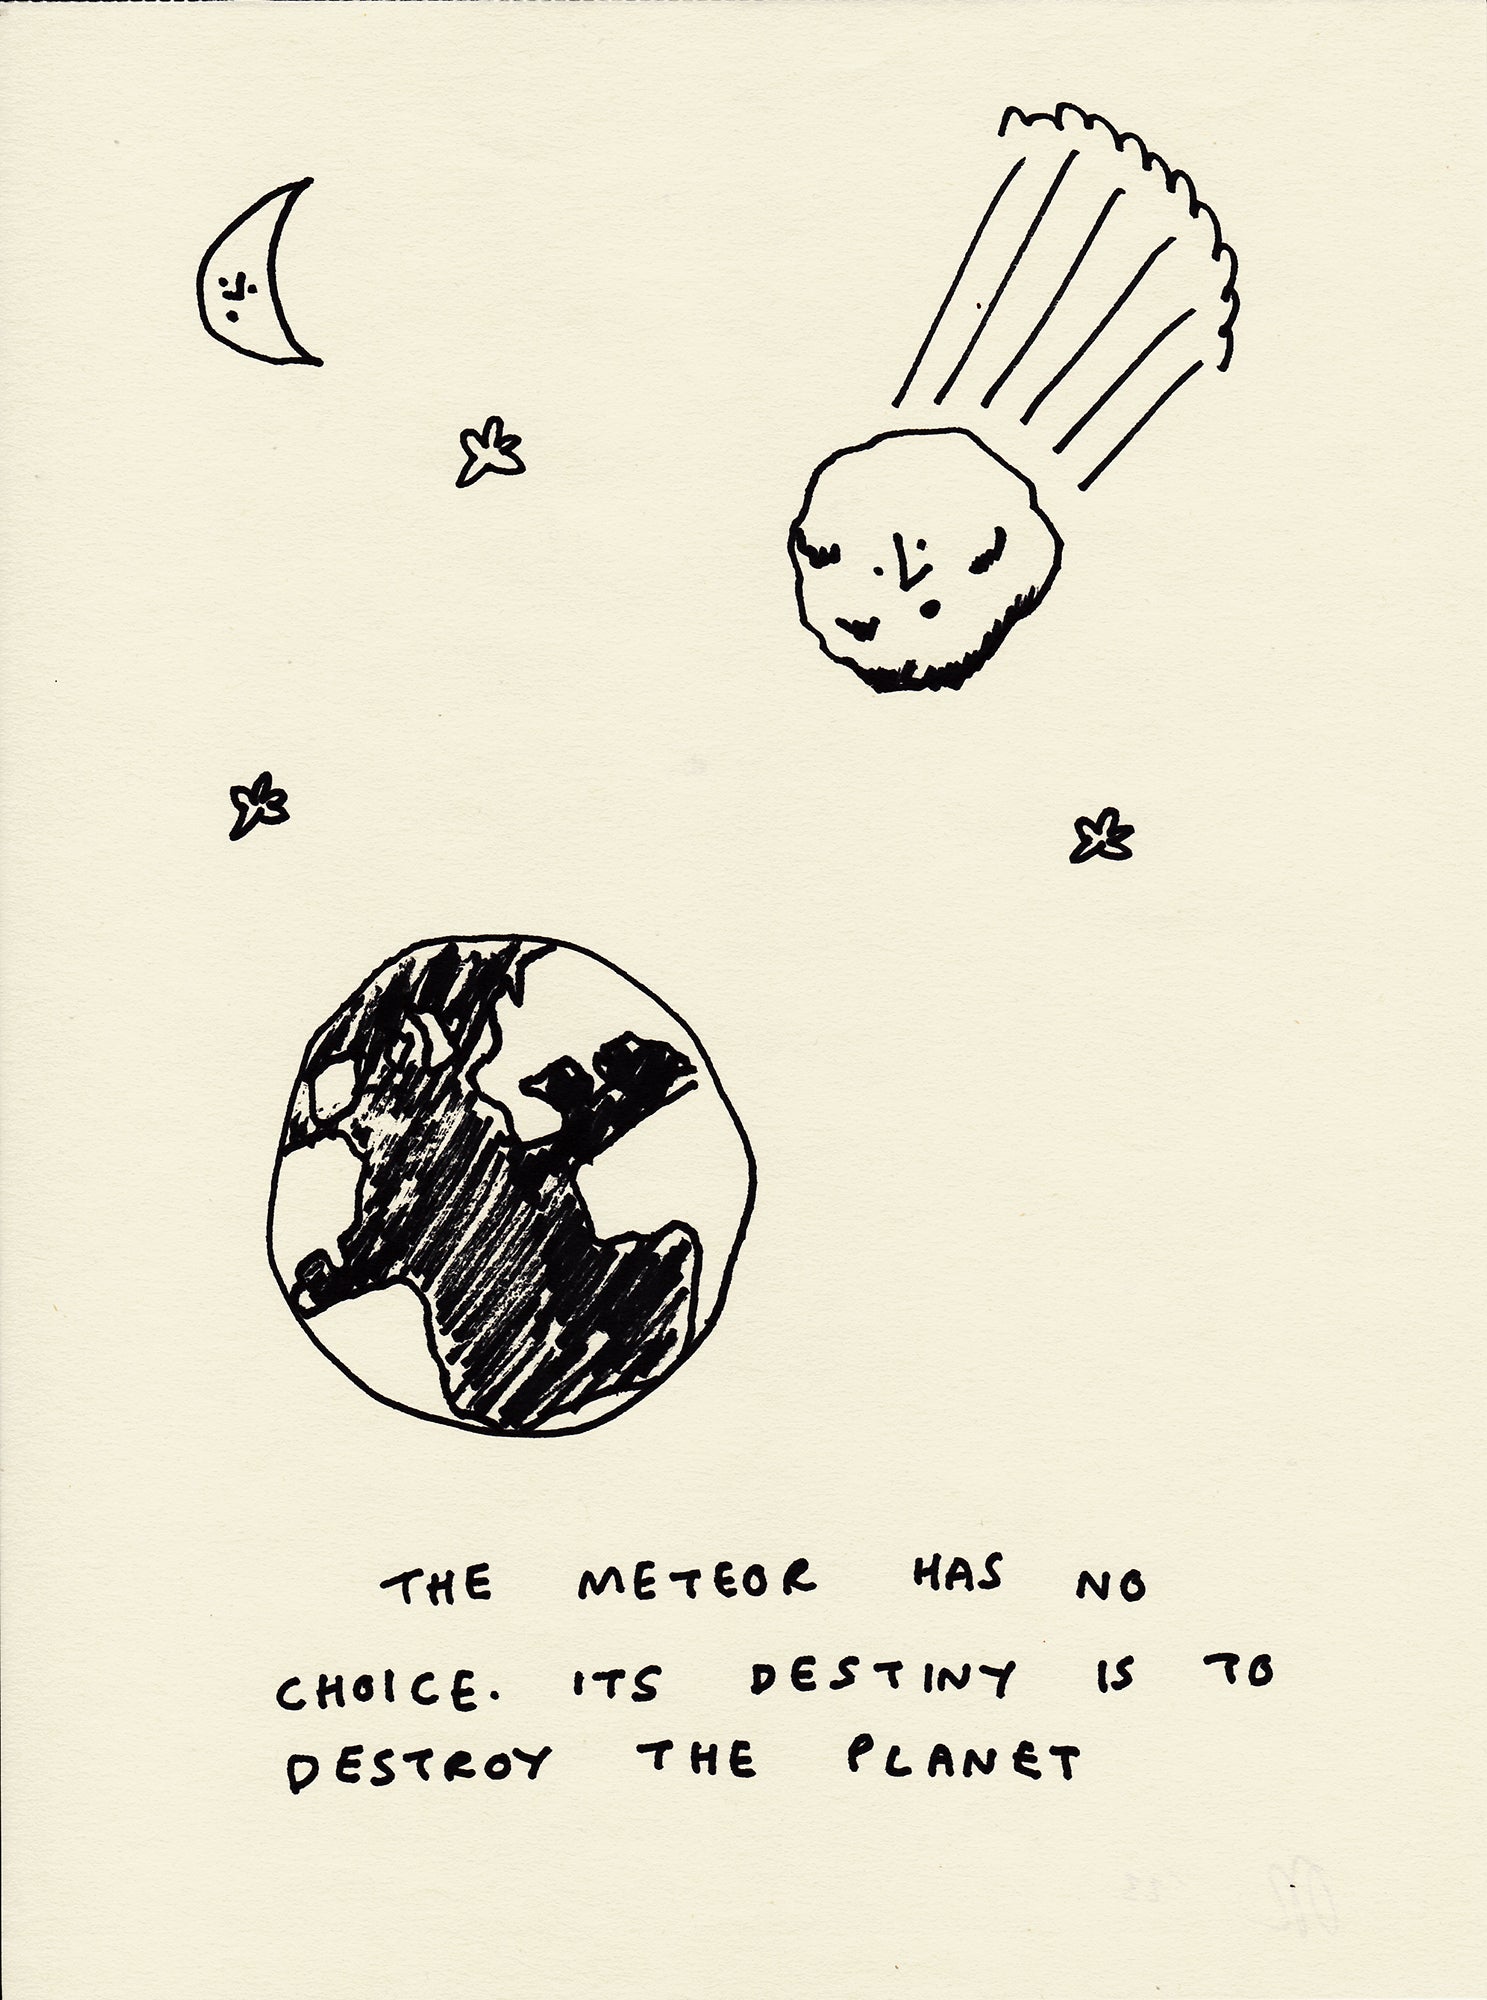 THE METEOR HAS NO
CHOICE. ITS DESTINY IS TO
DESTROY THE PLANET